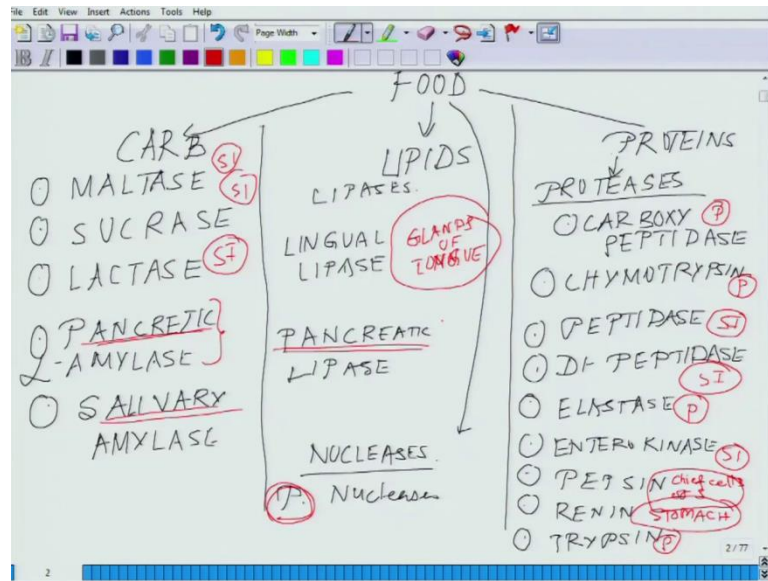 File Edit View Insert Actions Tools Help
Page Width
B I
FOOD
CARB
SI
MALTASE SI
SUCRASE
LACTASE SI
PANCRETIC
α-AMYLASE
SALIVARY
AMYLASE
LIPIDS
LIPASES.
LINGUAL
LIPASE
GLANDS
OF
TONGUE
PANCREATIC
LIPASE
NUCLEASES.
P. Nucleases
PROTEINS
PROTEASES
CARBOXY P
PEPTIDASE
CHYMOTRYPSIN P
PEPTIDASE SI
DI PEPTIDASE
SI
ELASTASE P
ENTEROKINASE SI
PEPSIN Chief cells
of S
RENIN STOMACH
TRYPSIN P
2/77
2